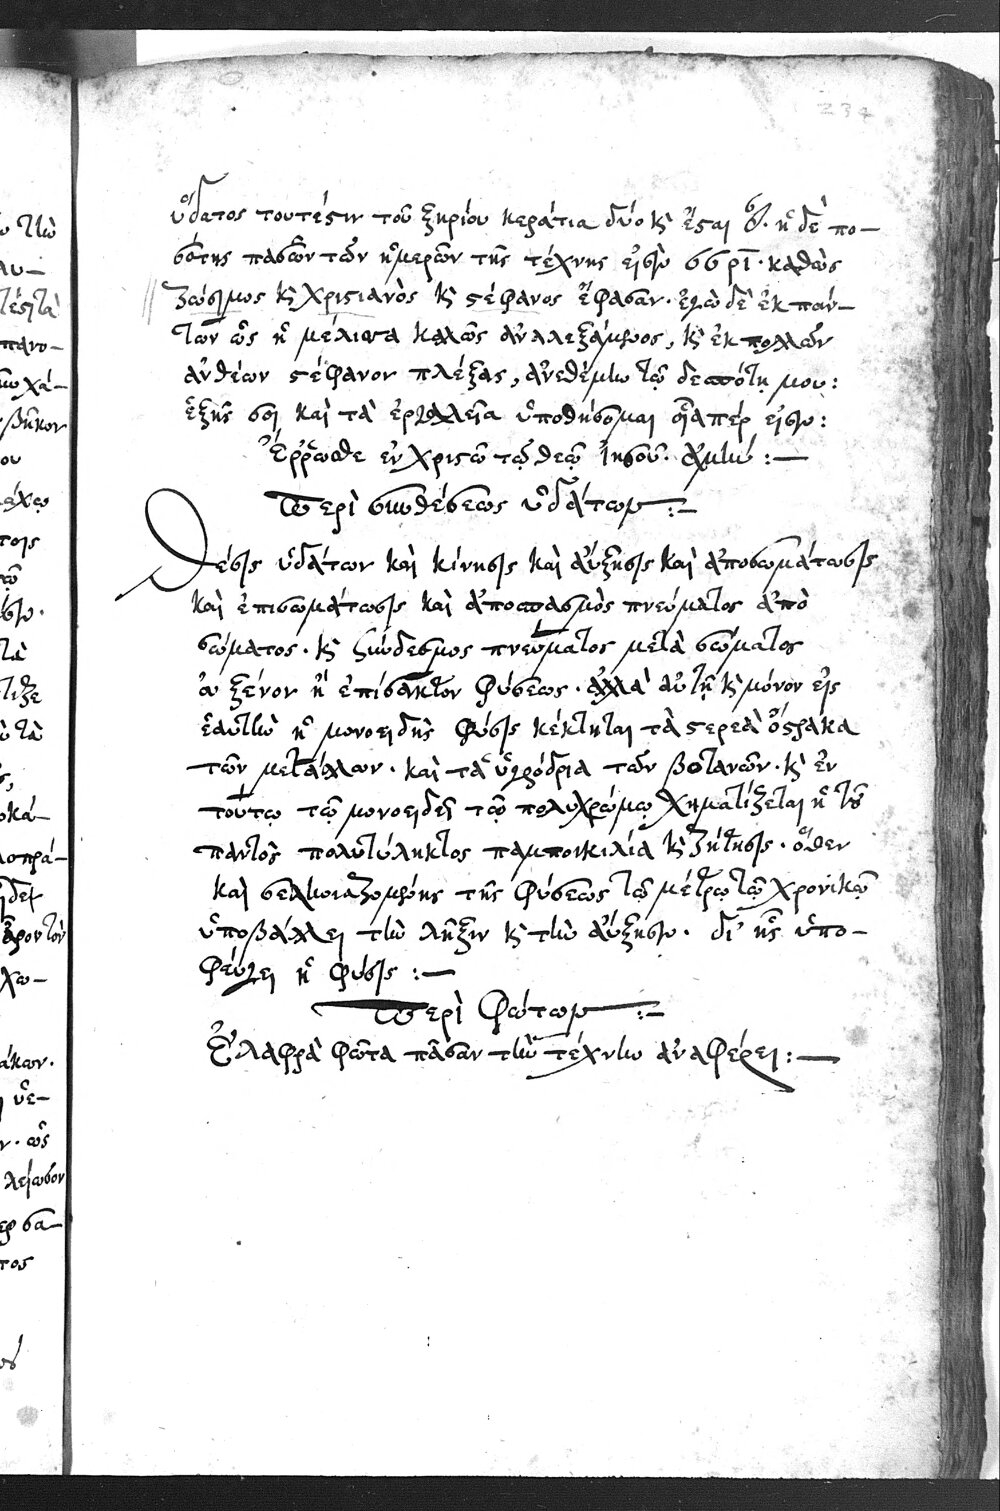 234
ὕδατος τουτέστιν τοῦ ξηρίου κεράτια δύο κ̀ ἔσται η δὲ πο-
σότης πασῶν τῶν ἡμερῶν τῆς τέχνης εἰσὶν ρῑ · καθὼς
Ζώσιμος κ̀ χριστιανὸς κ̀ στέφανος ἔφασαν · ἐγὼ δὲ ἐκ πάν-
των ὡς ἡ μέλισσα καλῶς ἀναλεξάμενος, κ̀ ἐκ πολλῶν
ἀνθέων στέφανον πλέξας, ἀνεθέμην τῷ δεσπότῃ μου :
ἑξῆς σοι καὶ τὰ ἐργαλεῖα ὑποθήσομαι οἷάπερ εἰσιν :
Ἔρρωσθε ἐν χριστῷ τῷ θεῷ ἰησοῦ · ἀμήν : —
Περὶ συνθέσεως ὑδάτων : —
Θέσις ὑδάτων καὶ κίνησις καὶ αὔξησις καὶ ἀποσωμάτωσις
καὶ ἐπισωμάτωσις καὶ ἀποσπασμὸς πνεύματος ἀπὸ
σώματος · κ̀ σύνδεσμος πνεύματος μετὰ σώματος
οὐ ξένον ἢ ἐπίσακτον φύσεως · ἀλλὰ αὐτὴ κ̀ μόνον εἰς
ἑαυτὴν ἡ μονοειδὴς φύσις κέκτηται τὰ στερεὰ ὄστρακα
τῶν μετάλλων · καὶ τὰ ὑγρόδρια τῶν βοτανῶν · κ̀ ἐν
τούτῳ τῷ μονοειδεῖ τῷ πολυχρώμῳ χηματίζεται ἡ τοῦ
παντὸς πολυτύληκτος παμποικιλία κ̀ ζήτησις · ὅθεν
καὶ σεληνιαζομένης τῆς φύσεως τῷ μέτρῳ τῷ χρονικῷ
ὑποβάλλει τὴν λῆξιν κ̀ τὴν αὔξησιν · δι' ἧς ὑπο-
φεύγει ἡ φύσις : —
Περὶ φώτων : —
Ἐλαφρὰ φῶτα πᾶσαν τὴν τέχνην ἀναφέρει : —